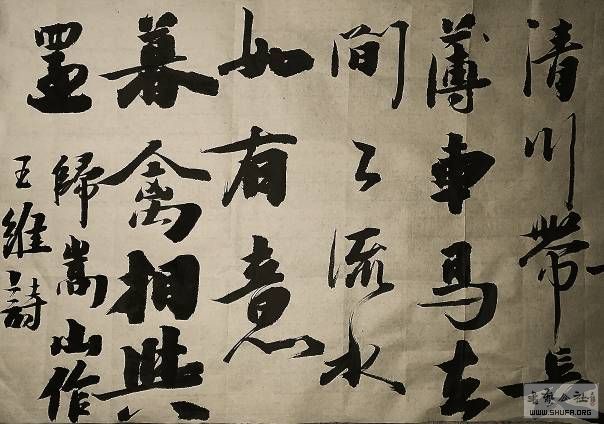 清川帶長
薄車馬去
間々流水
如有意
暮禽相與
還
歸嵩山作
王維詩
書藝公社
WWW.SHUFA.ORG